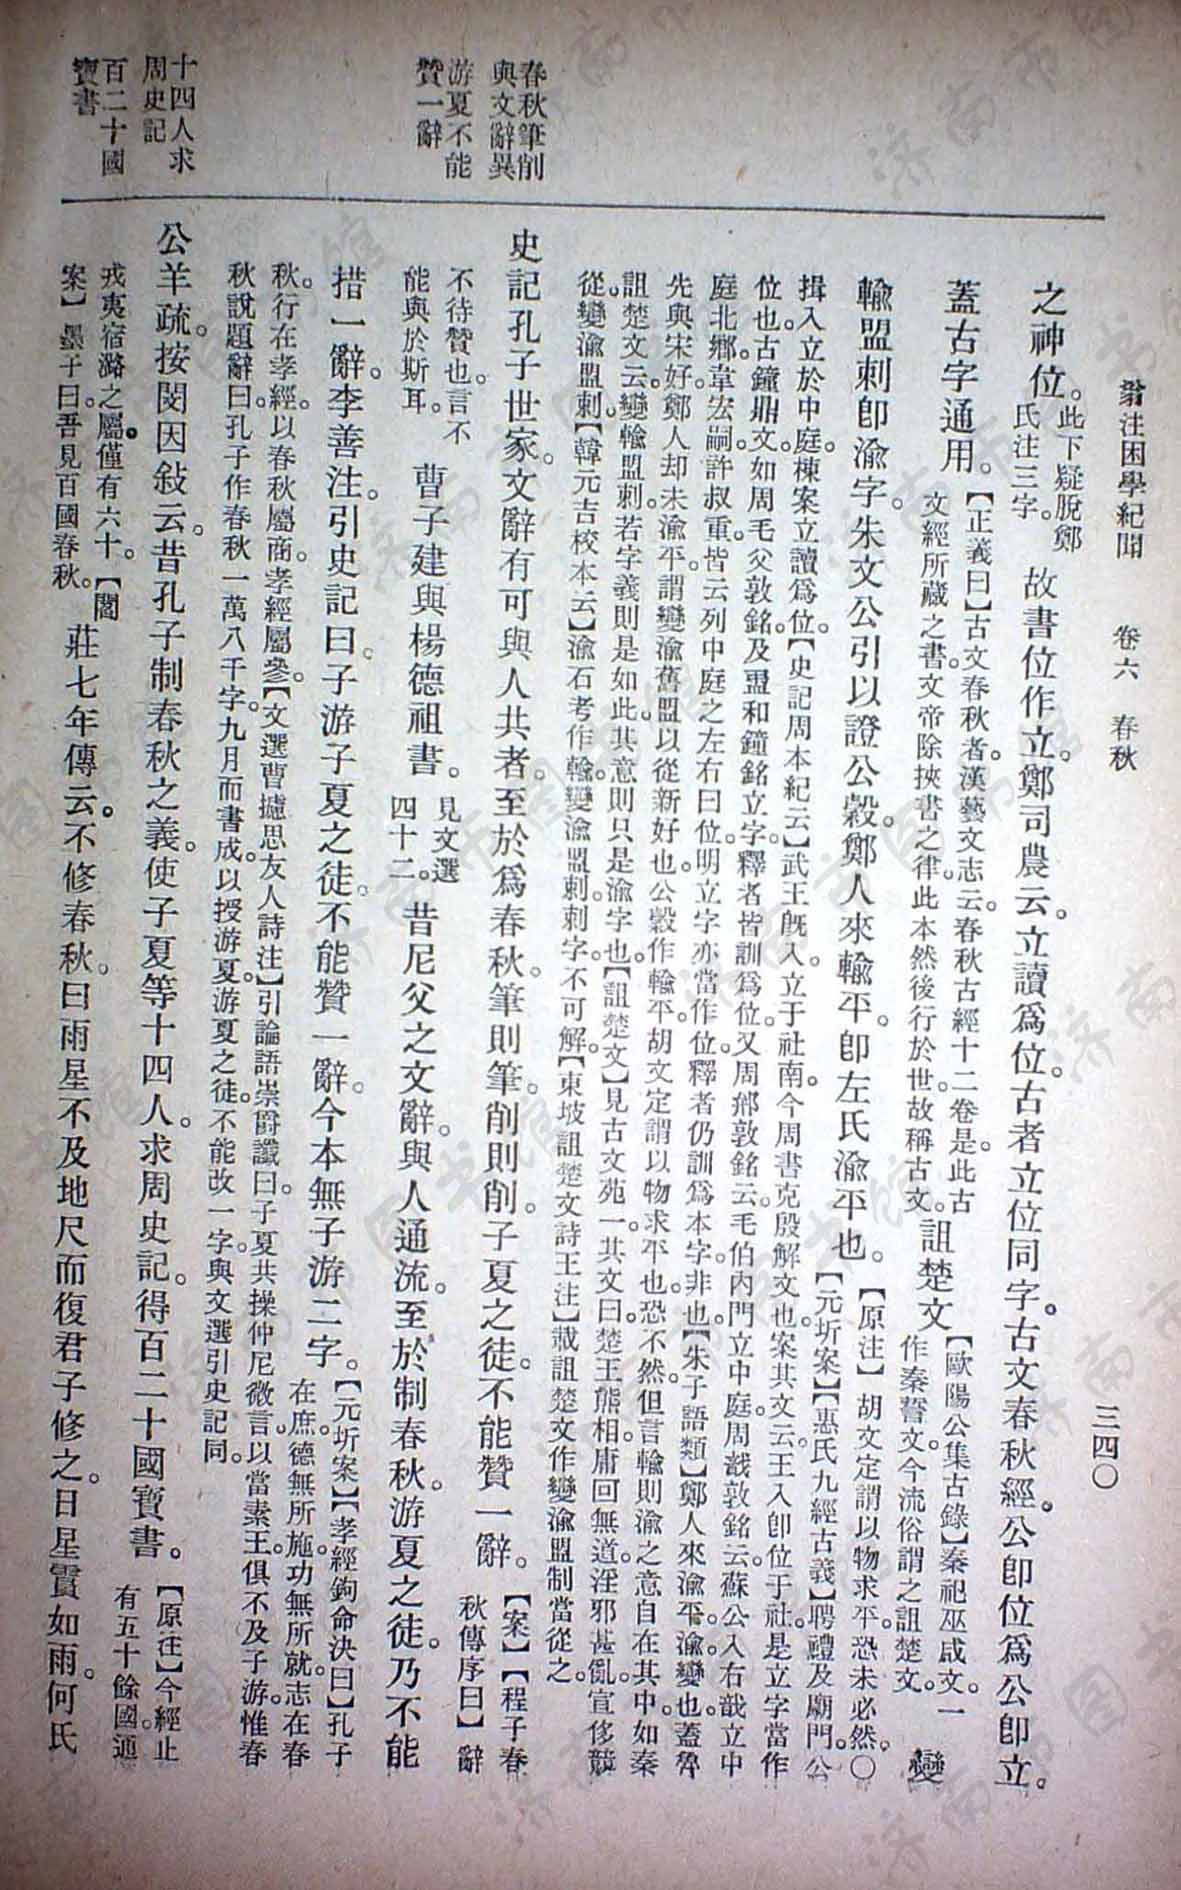 翁注困學紀聞　卷六　春秋　三四〇
之神位。此下疑脫鄭氏注三字。故書位作立。鄭司農云。立讀爲位。古者立位同字。古文春秋經。公卽位爲公卽立。
蓋古字通用。【正義曰】古文春秋者。漢藝文志云。春秋古經十二卷是。此古文經所藏之書。文帝除挾書之律。此本然後行於世。故稱古文。詛楚文【歐陽公集古錄】秦祀巫咸文。一作秦誓文。今流俗謂之詛楚文。變
輸盟刺卽渝字。朱文公引以證公穀鄭人來輸平。卽左氏渝平也。【原注】胡文定謂以物求平。恐未必然。〇【元圻案】【惠氏九經古義】聘禮及廟門。公
揖入立於中庭。棟案立讀爲位。【史記周本紀云】武王旣入。立于社南。今周書克殷解文也。案其文云。王入卽位于社。是立字當作
位也。古鐘鼎文。如周毛父敦銘。及盟和鐘銘。立字釋者皆訓爲位。又周𨛭敦銘云。毛伯內門立中庭。周戠敦銘云。蘇公入右戠立中
庭北鄉。韋宏嗣許叔重。皆云列中庭之左右曰位。明立字亦當作位。釋者仍訓爲本字。非也。【朱子語類】鄭人來渝平。渝。變也。蓋魯
先與宋好。鄭人却未渝平。謂變渝舊盟以從新好也。公穀作輸平。胡文定謂以物求平也。恐不然。但言輸則渝之意自在其中。如秦
詛楚文云。變輸盟刺。若字義則是如此。其意則只是渝字也。【詛楚文】見古文苑一。其文曰。楚王熊相。庸回無道。淫邪甚亂。宣侈競
從。變渝盟刺。【韓元吉校本云】渝石考作輸。變渝盟刺。刺字。不可解。【東坡詛楚文詩王注】載詛楚文作變渝盟制。當從之。
春秋筆削與文辭異
史記孔子世家。文辭有可與人共者。至於爲春秋。筆則筆。削則削。子夏之徒。不能贊一辭。【案】【程子春秋傳序曰】辭
游夏不能贊一辭
不待贊也。言不能與於斯耳。曹子建與楊德祖書。見文選四十二。昔尼父之文辭。與人通流。至於制春秋。游夏之徒。乃不能
措一辭。李善注。引史記曰。子游子夏之徒。不能贊一辭。今本無子游二字。【元圻案】【孝經鉤命決曰】孔子在庶。德無所施。功無所就。志在春
秋。行在孝經。以春秋屬商。孝經屬參。【文選曹攄思友人詩注】引論語崇爵讖曰。子夏共操仲尼微言。以當素王。俱不及子游。惟春
秋說題辭曰。孔子作春秋一萬八千字。九月而書成。以授游夏。游夏之徒。不能改一字。與文選引史記同。
十四人求周史記
公羊疏。按閔因敍云。昔孔子制春秋之義。使子夏等十四人。求周史記。得百二十國寶書。【原注】今經止有五十餘國。通
百二十國寶書
戎夷宿潞之屬。僅有六十。【閻案】墨子曰。吾見百國春秋。莊七年傳云。不修春秋。曰雨星不及地尺而復。君子修之。曰星霣如雨。何氏